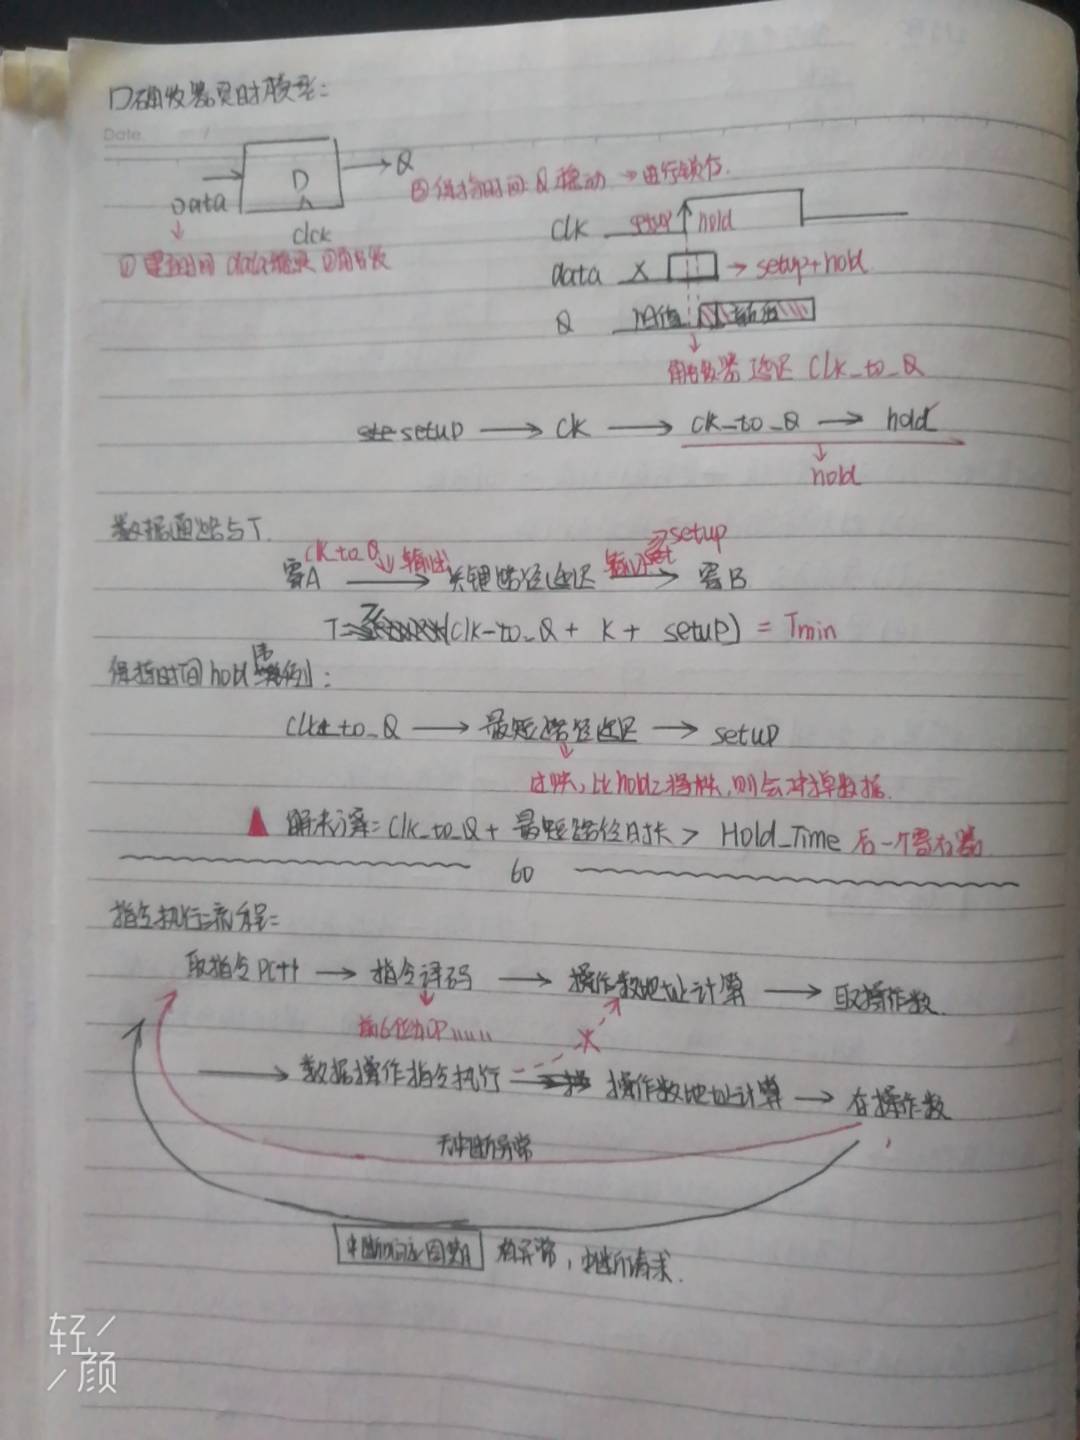 D触发器定时模型:
Date /
Data
D
clck
Q
② 保持时间 Q 稳动 → 进行锁存.
① 建立时间 data
clk setup hold
data X → setup+hold
Q 旧值 新值
触发器 延迟 Clk_to_Q
setup → CK → CK_to_Q → hold
hold
数据通路与T.
CK_to_Q 输出 setup
寄A → 关键路径延迟 → 寄B
T= (Clk-to_Q + K + setup) = Tmin
保持时间hold 例:
Clk_to_Q → 最短路径延迟 → setup
过快, 比hold 则会冲掉数据.
解决方案: Clk_to_Q + 最短路径时长 > Hold_Time 后一个寄存器
60
指令执行流程:
取指令 PC+1 → 指令译码 → 操作数地址计算 → 取操作数
前6位为OP
→ 数据操作指令执行 → 操作数地址计算 → 存操作数
无中断异常
中断响应周期 有异常, 中断请求.
轻颜